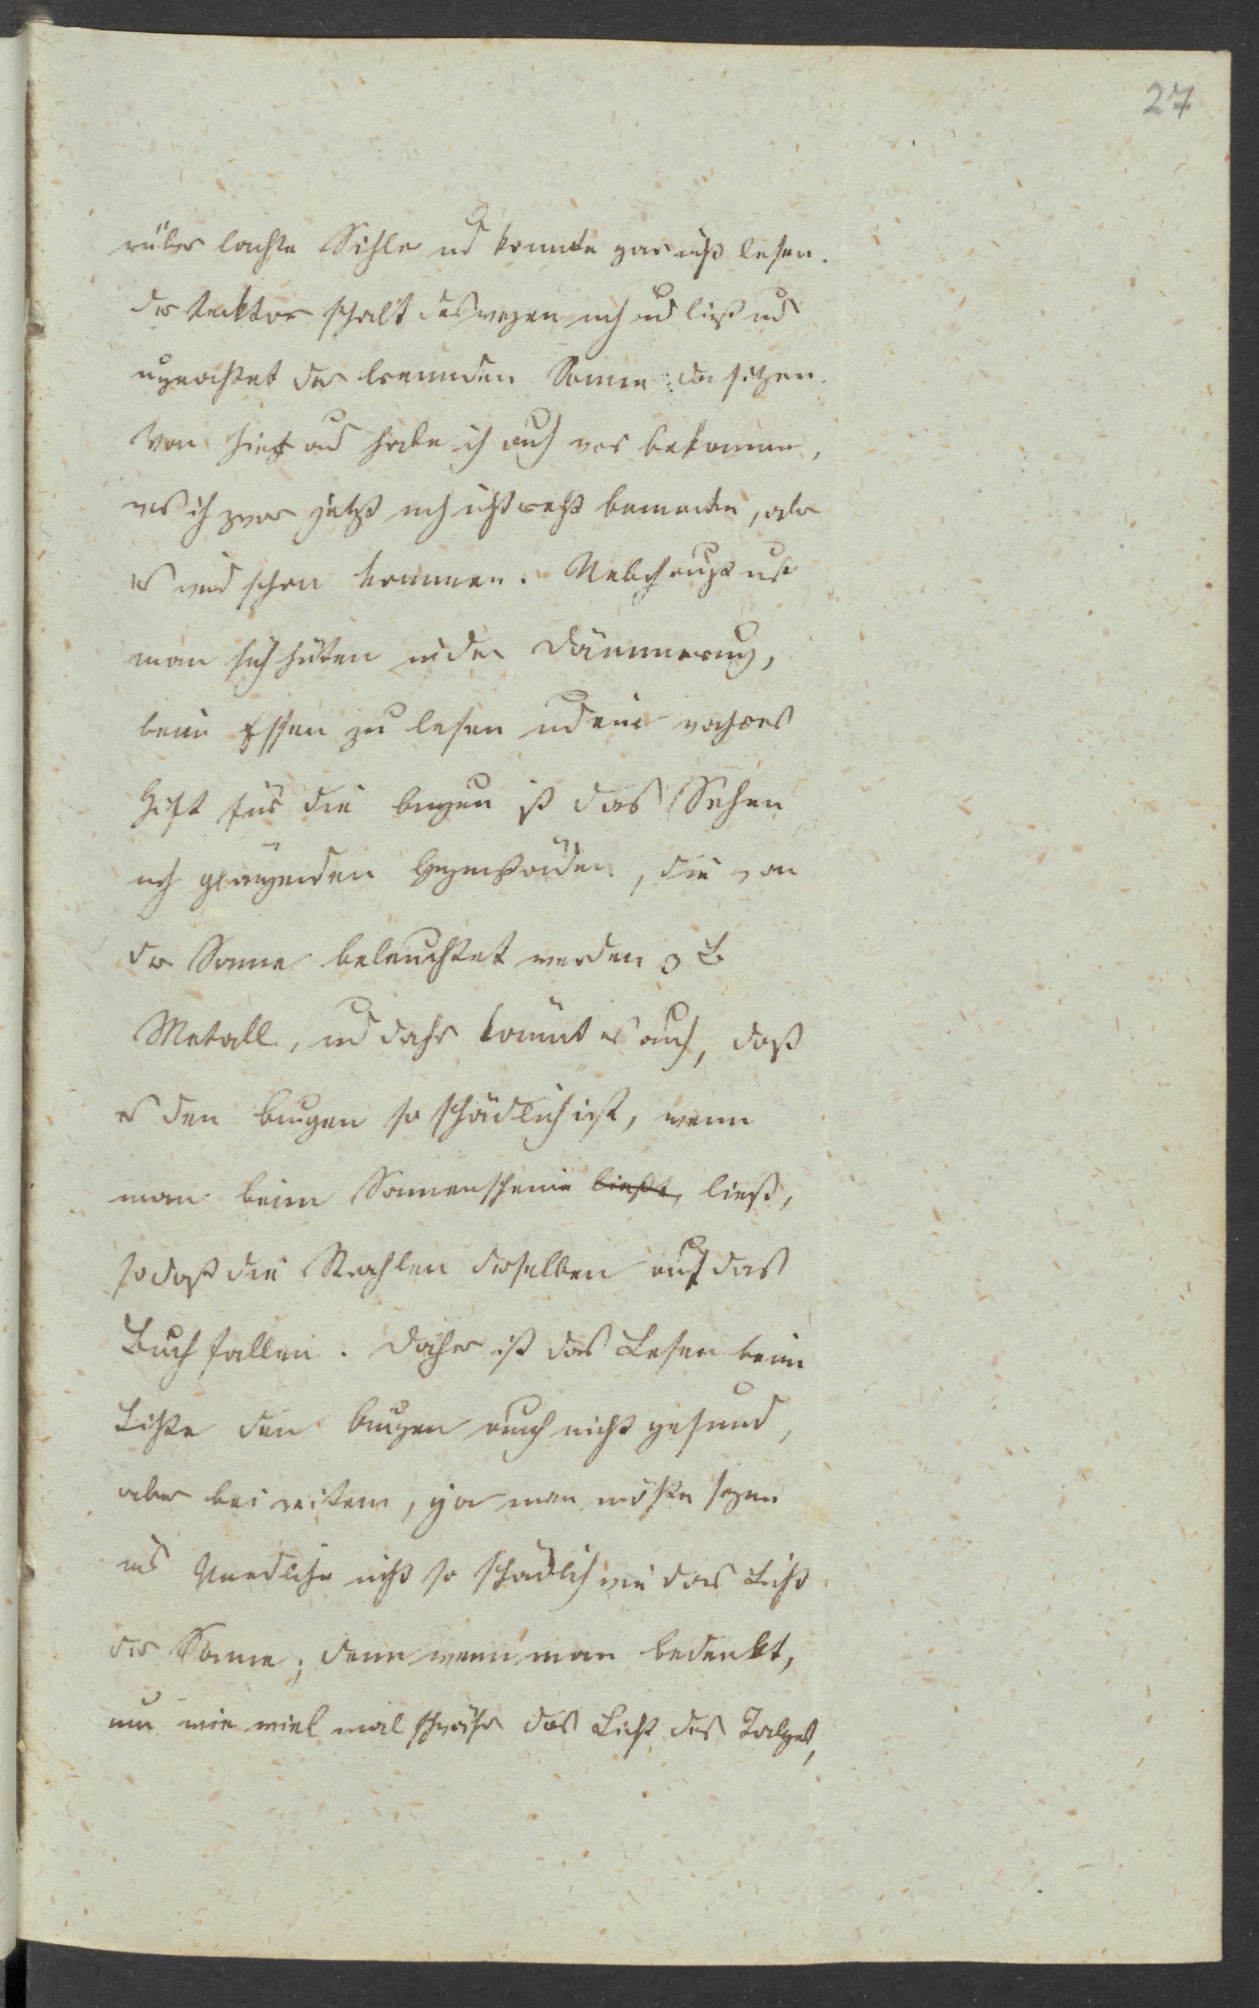 27
rüber lachte Sihler ud konnte gar nicht lesen.
der Rektor schalt deswegen noch ud ließ uns
ungeachtet der brennenden Sonne da sitzen.
Von hier aus habe ich auch was bekommen,
was ich zwar jetzt noch nicht recht bemerke, aber
es wird schon kommen. Überhaupt muß
man sich hüten in der Dämmerung,
beim Essen zu lesen und ein wahres
Gift für die Augen ist das Sehen
nach glänzenden Gegenständen, die von
der Sonne beleuchtet werden z B
Metall, und daher kommt es auch, daß
es den Augen so schädlich ist, wenn
man beim Sonnenschein ließt, ließt,
so daß die Strahlen derselben auf das
Buch fallen. Daher ist das Lesen beim
Lichte den Augen auch nicht gesund,
aber bei weitem, ja man möchte sagen
ins Unendliche nicht so schädlich wie das Licht
der Sonne; denn wenn man bedenkt,
um wie viel mal schwächer das Licht des Talges,